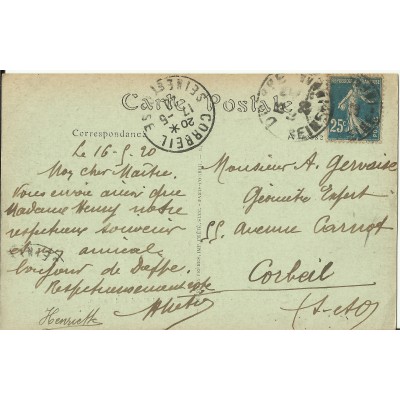 Carte Postale
Correspondance
CORBEIL
SEINE ET OISE
20 *
17-5
25c
Le 16-5-20
Mon cher Maître,
Vous envoie ainsi que
Madame Henry notre
respectueux souvenir
et amical
bonjour de Dieppe.
Respectueusement
Henriette
Monsieur A. Gervaise
Géomètre Expert
55 avenue Carnot
Corbeil
(S-et-O)